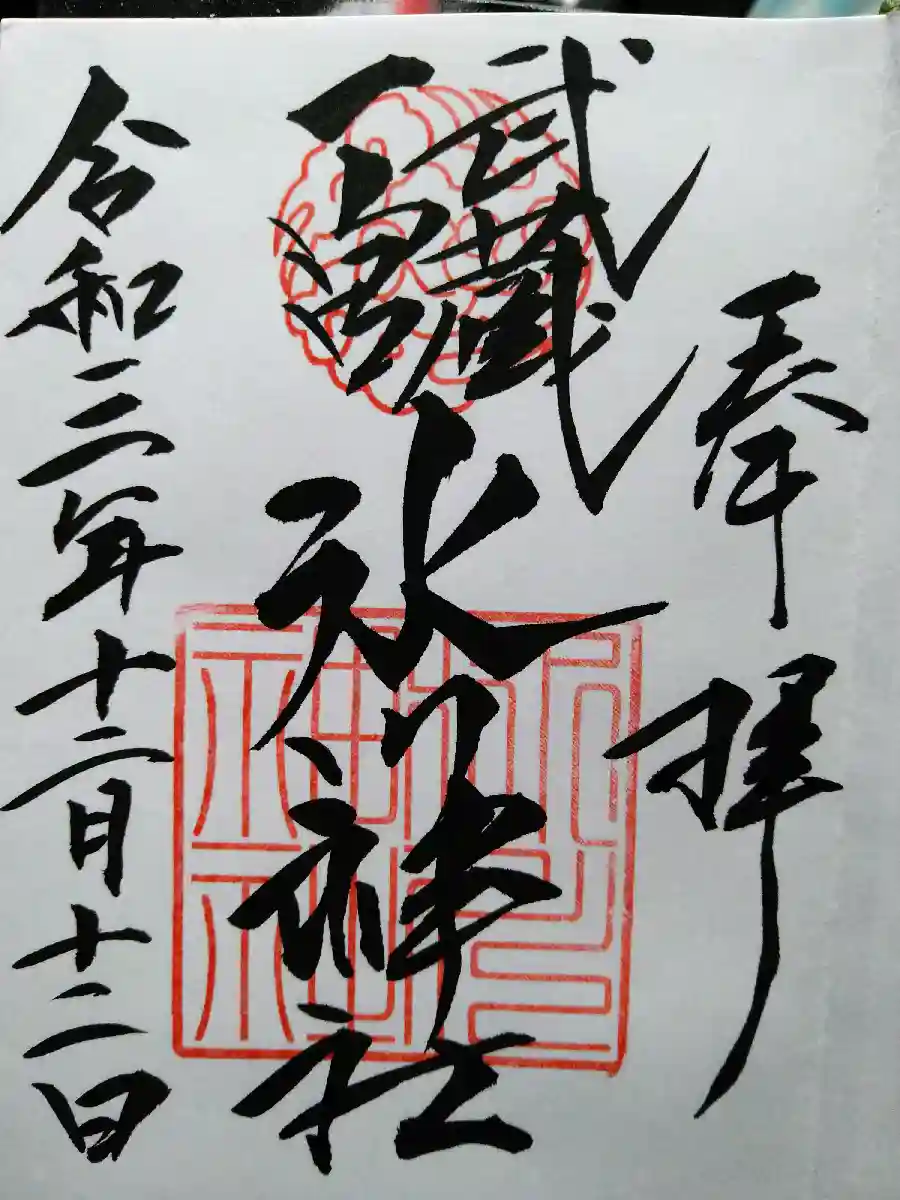 奉拝
武蔵
一宮
氷川神社
令和三年十二月十二日